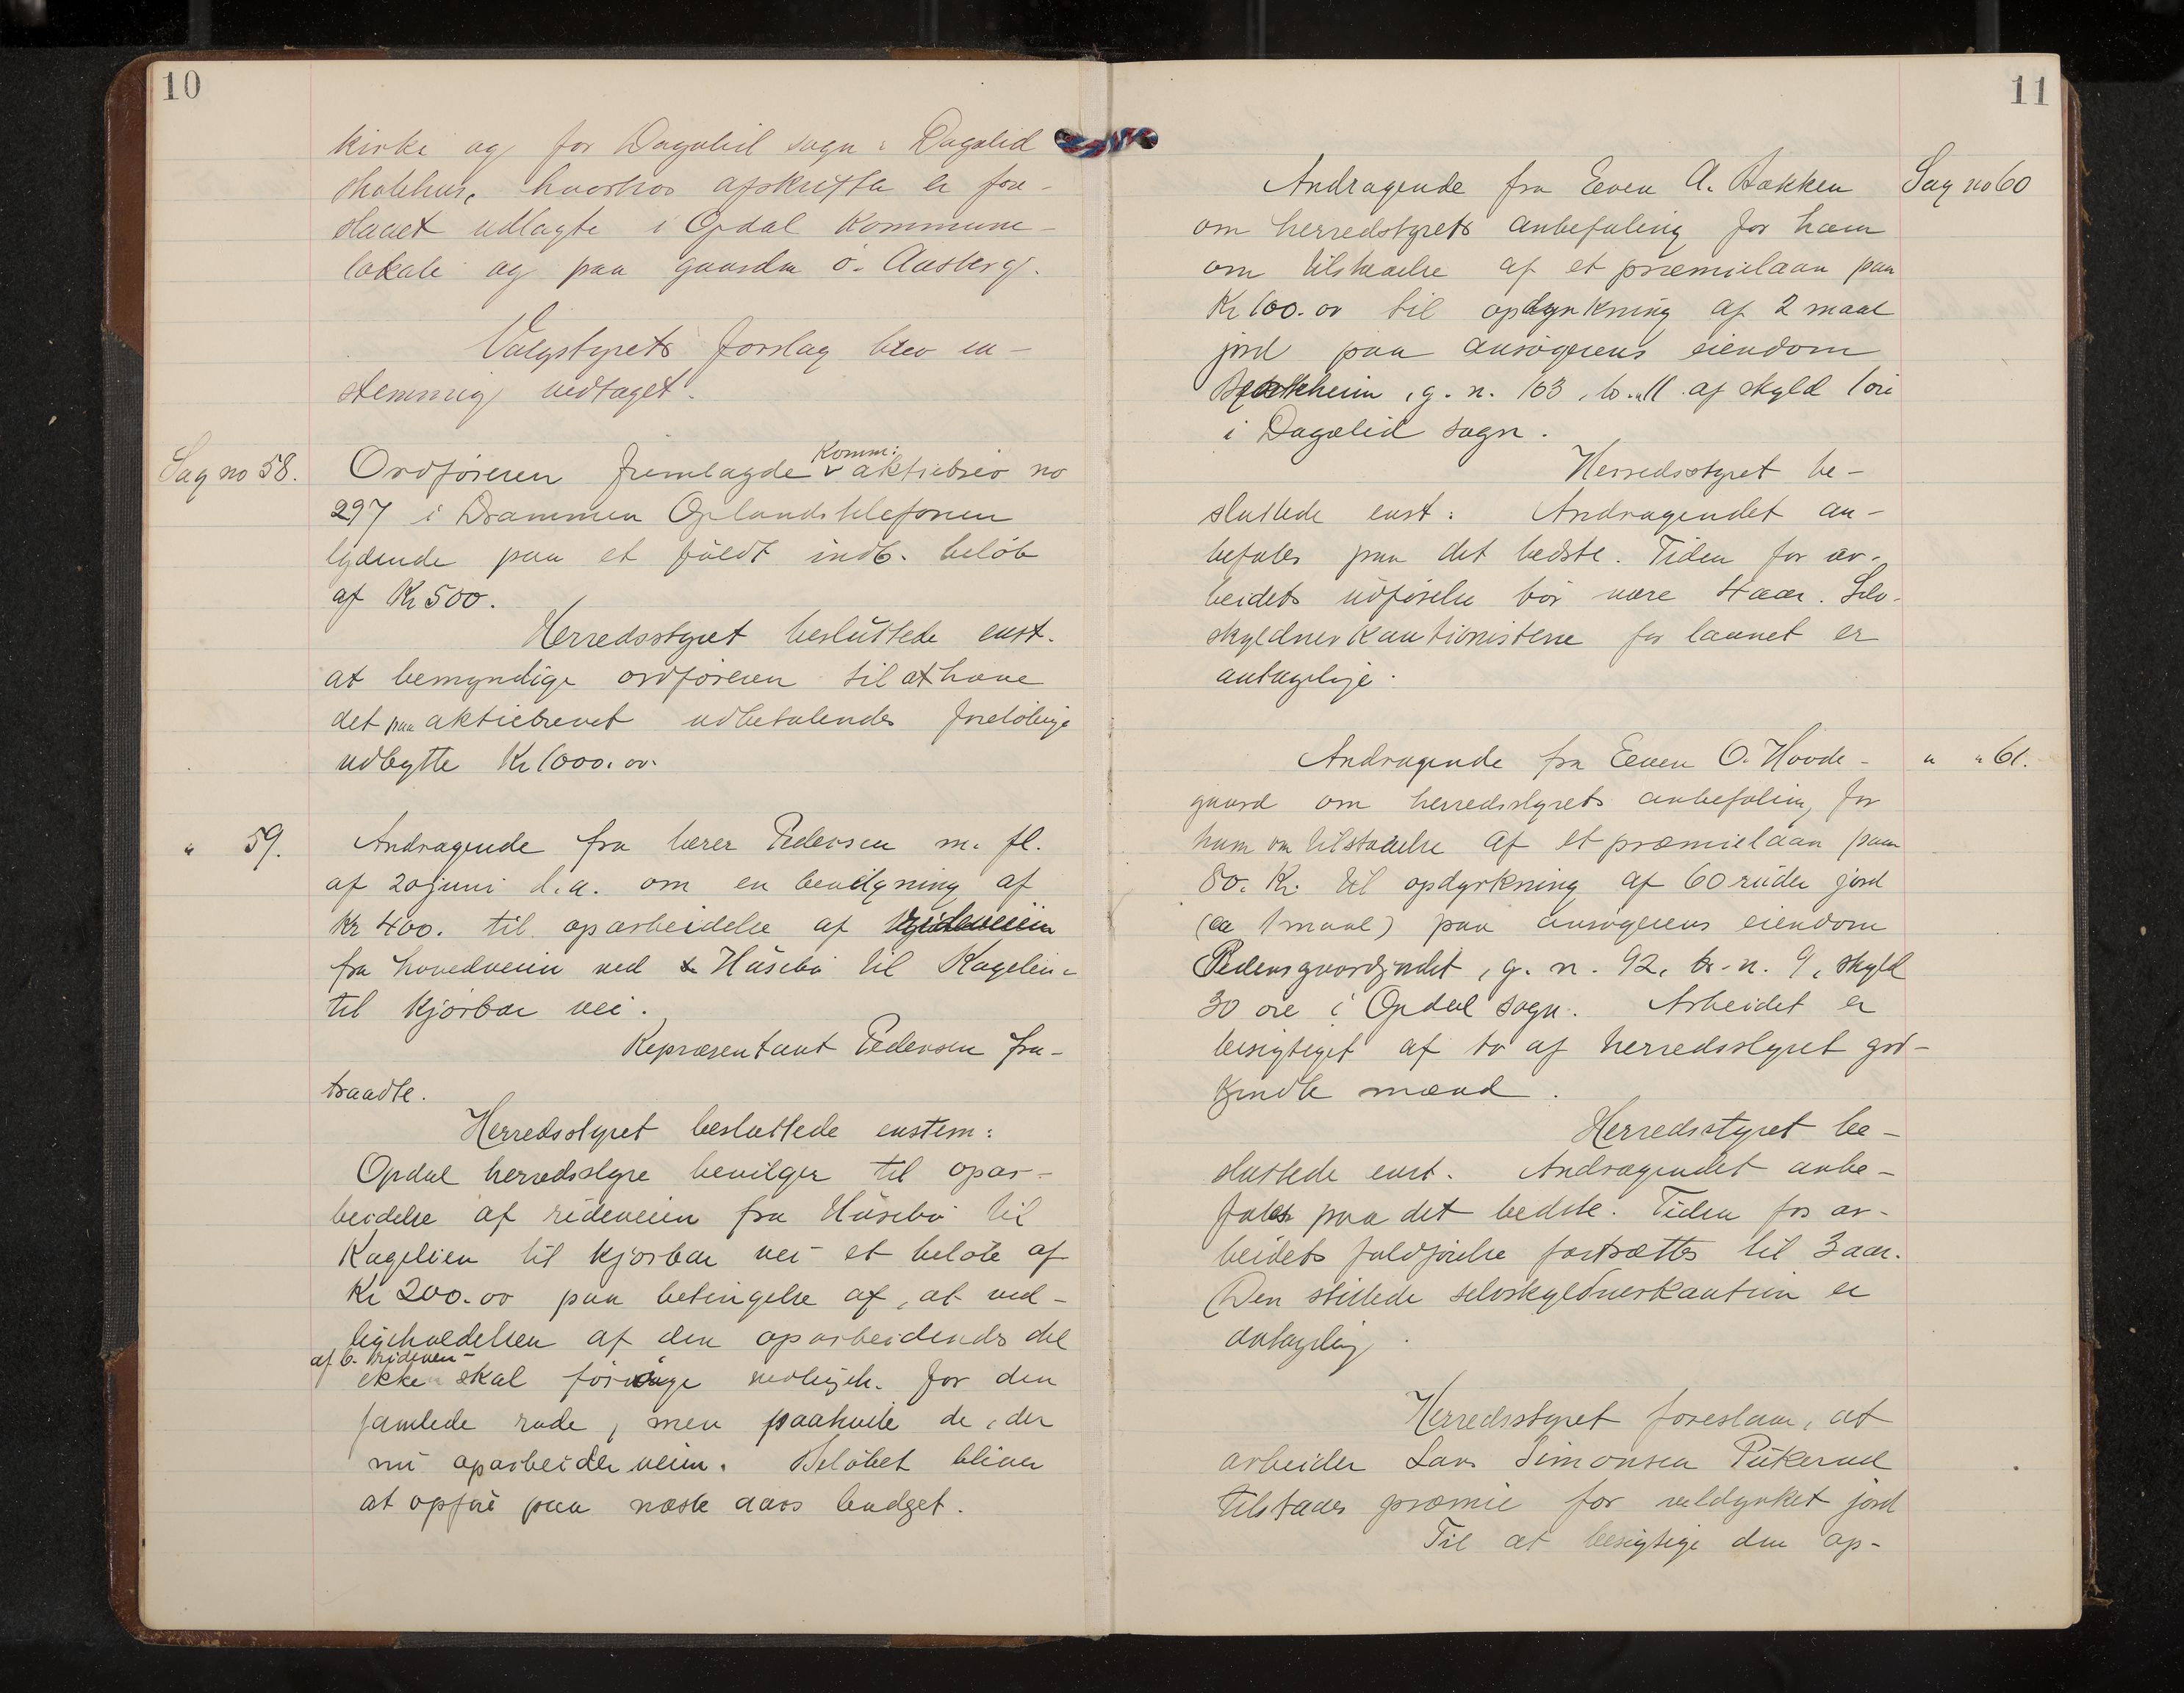 10
kirke og for Dagalid sogn: Dagalid
skolehus, hvorhos afskrifter er fore-
slaaet udlagte i Opdal Kommune-
lokale og paa gaarden ö. Aasberg.
Valgstyrets forslag blev en-
stemmig vedtaget.
Sag no 58.
Ordföreren fremlagde Komm: aktiebrev no
297 i Drammen Oplandstelefonen
lydende paa et fuldt indb. belöb
af Kr 500.
Herredsstyret besluttede enst.
at bemyndige ordföreren til at hæve
det paa aktiebrevet udbetalendes forelöbige
udbytte Kr 1000.00.
" 59.
Andragende fra lærer Pedersen m. fl.
af 20 juni d.a. om en bevilgning af
Kr 400. til oparbeidelse af
fra hovedveien ved Húsebö til Kagelien
til kjörbar vei.
Repræsentant Pedersen fra-
traadte.
Herredsstyret besluttede enstem:
Opdal herredsstyre bevilger til opar-
beidelse af rideveien fra Húsebö til
Kagelien til kjörbar vei et belöb af
Kr 200.00 paa betingelse af, at ved-
ligeholdelsen af den oparbeidende del
af rideveien
ikke skal för for den
samlede rode, men paahvile de, der
nú oparbeider veien. Belöbet bliver
at opföre paa næste aars budget.
11
Sag no 60
Andragende fra Even A. Bakken
om herredstyrets anbefaling for ham
om tilstaaelse af et præmielaan paa
Kr 100.00 til opdyrkning af 2 maal
jord paa ansögerens eiendom
g. n. 103, b.n 11 af skyld 1 öre
i Dagalid sogn.
Herredsstyret be-
sluttede enst: Andragendet an-
befales paa det bedste. Tiden for ar-
beidets udförelse bör være 4 aar. Selv-
skyldnerkautionisterne for laanet er
antagelige.
" " 61.
Andragende fra Even O. Hovde-
gaard om herredsstyrets anbefaling for
ham om tilstaaelse af et præmielaan paa
80. Kr. til opdyrkning af 60 rúder jord
(ca 1 maal) paa ansögerens eiendom
Pedersgaardjordet, g. n. 92, br. n. 9, skyld
30 öre i Opdal sogn. Arbeidet er
besigtiget af to af herredsstyret god-
kjendte mænd.
Herredsstyret be-
sluttede enst. Andragendet anbe-
fales paa det bedste. Tiden for ar-
beidets fuldförelse fastsættes til 3 aar.
Den stillede selvskyldnerkaution er
antagelig.
Herredsstyret foreslaar, at
arbeider Lars Simonsen Pükerud
tilstaaes præmie for veldyrket jord
Til at besigtige den op-